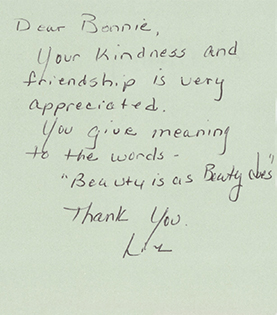 Dear Bonnie,
Your kindness and
friendship is very
appreciated.
You give meaning
to the words -
"Beauty is as Beauty does"
Thank You.
Liz